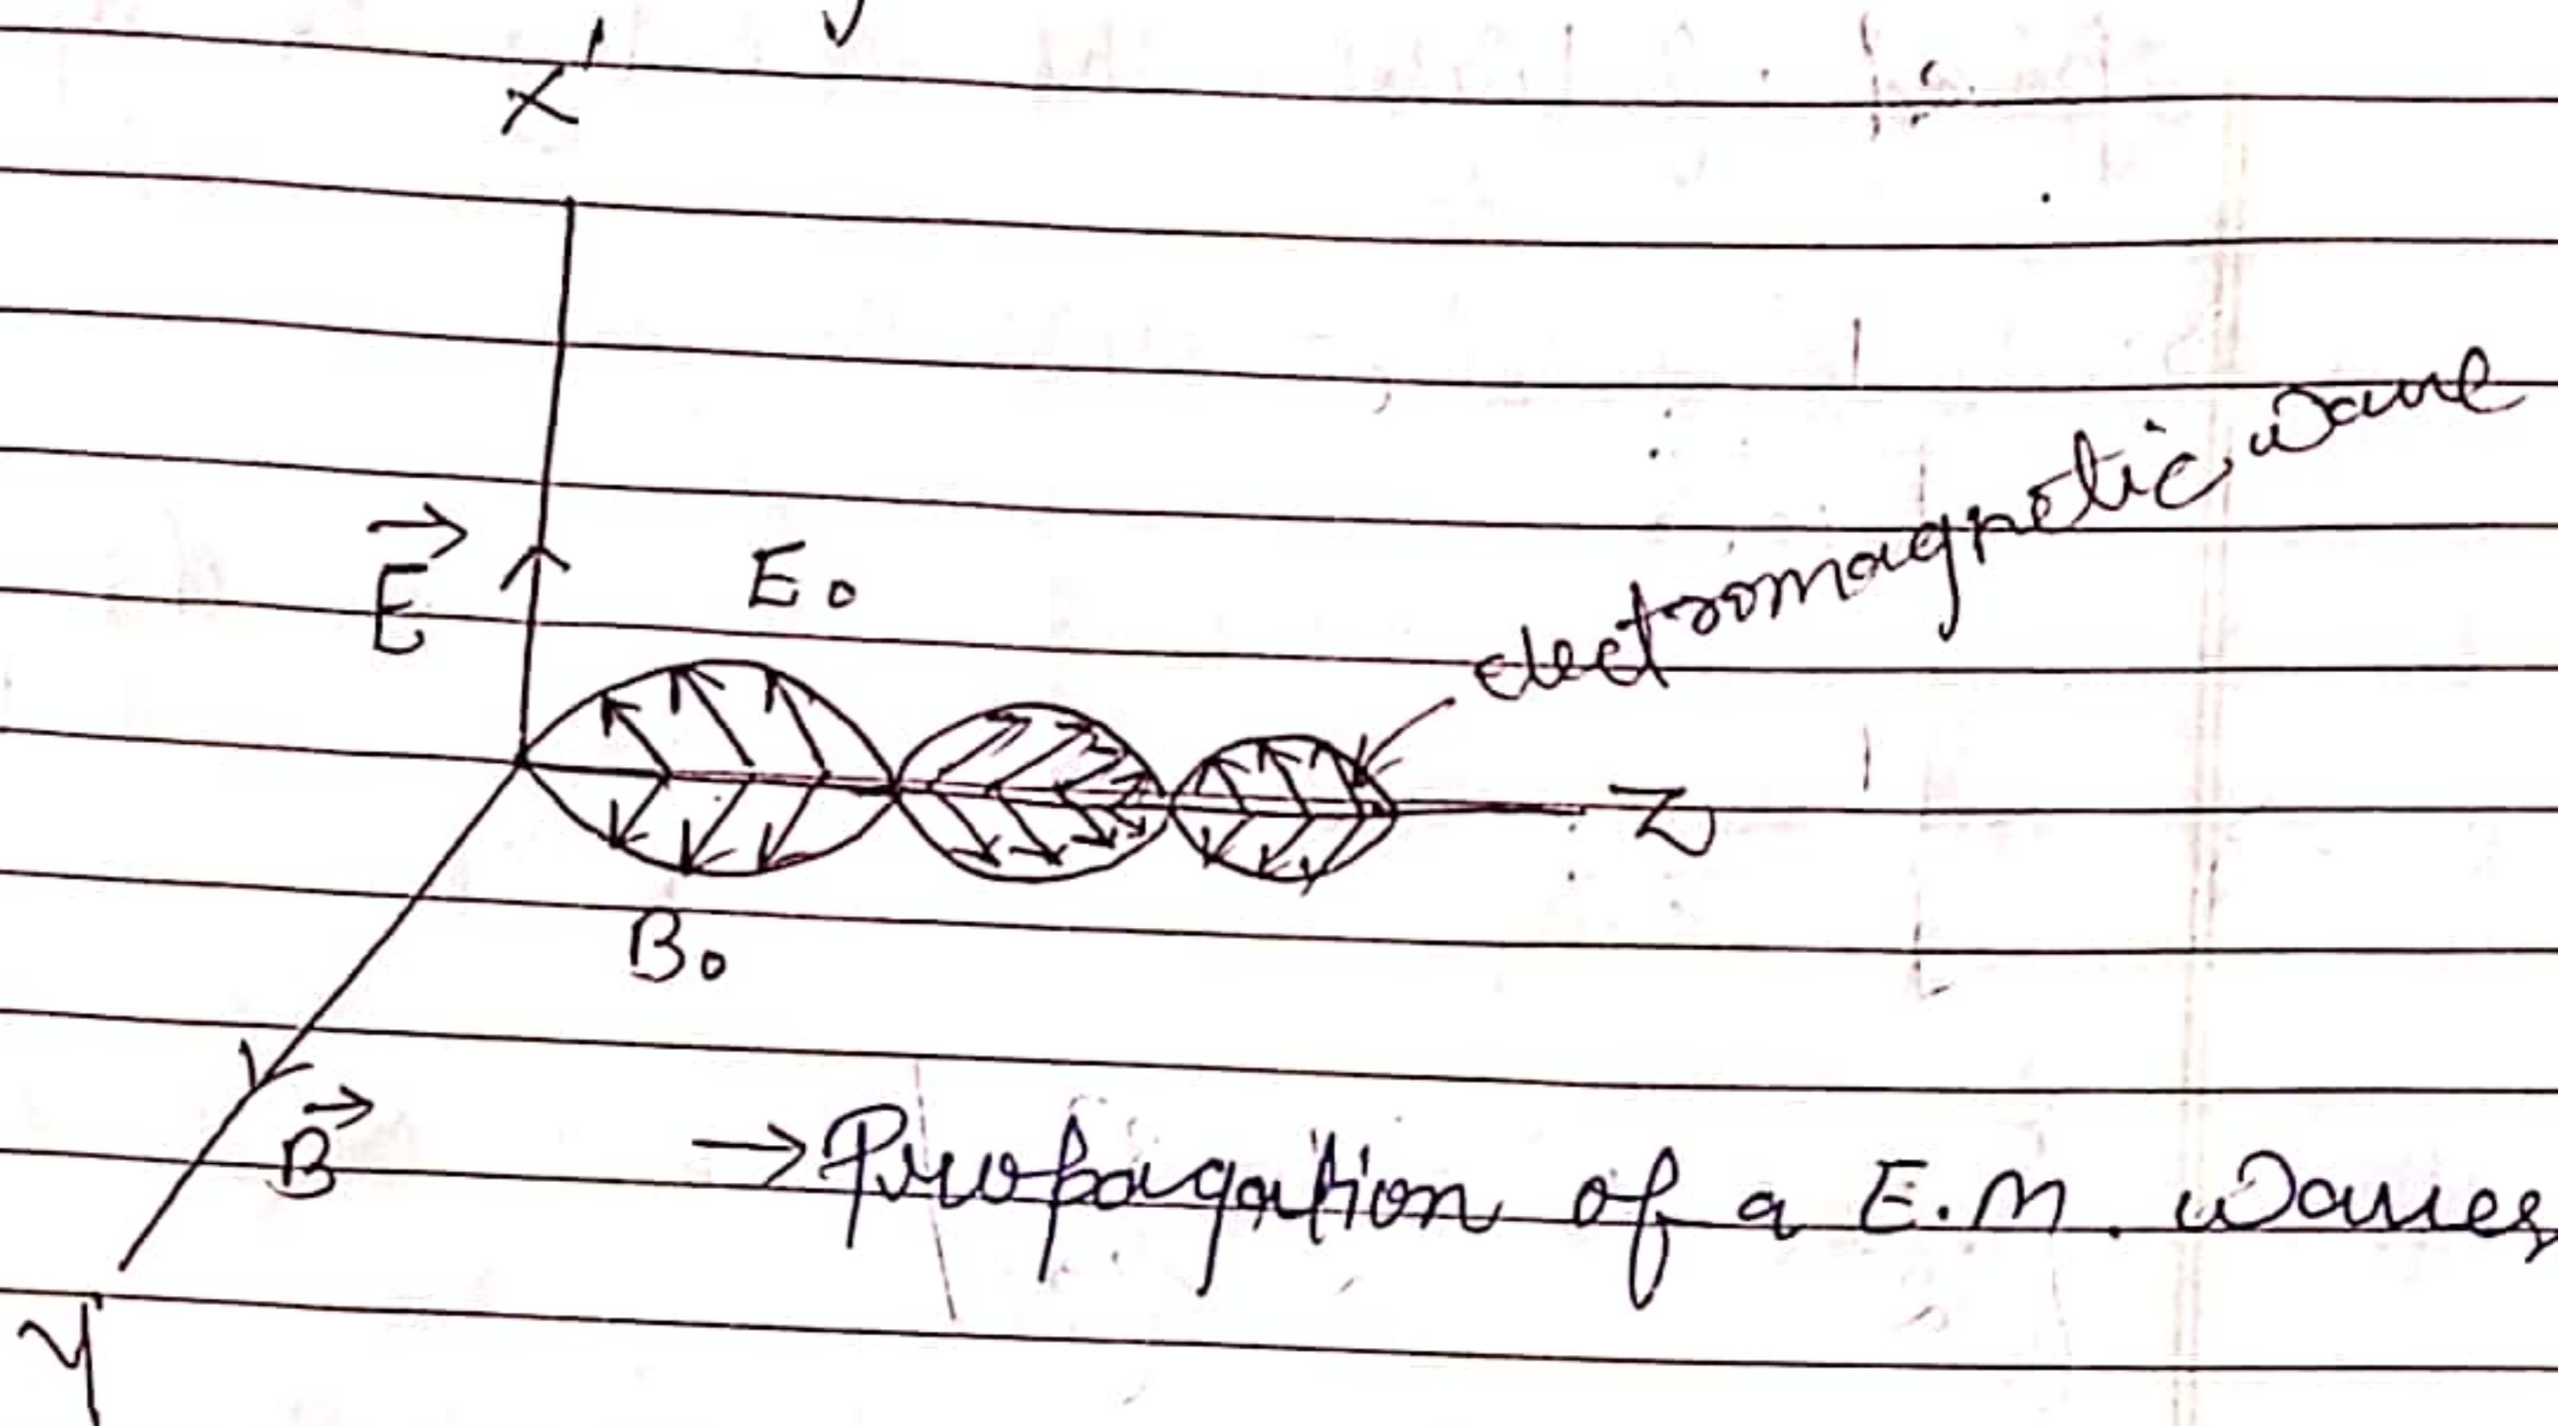 X'
E⃗
E₀
electromagnetic wave
Z
B₀
B⃗
→ Propagation of a E.M. Waves
Y